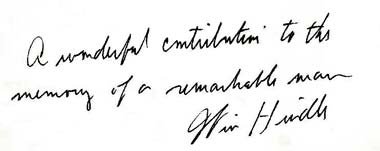 A wonderful contribution to the
memory of a remarkable man
Win Hindle